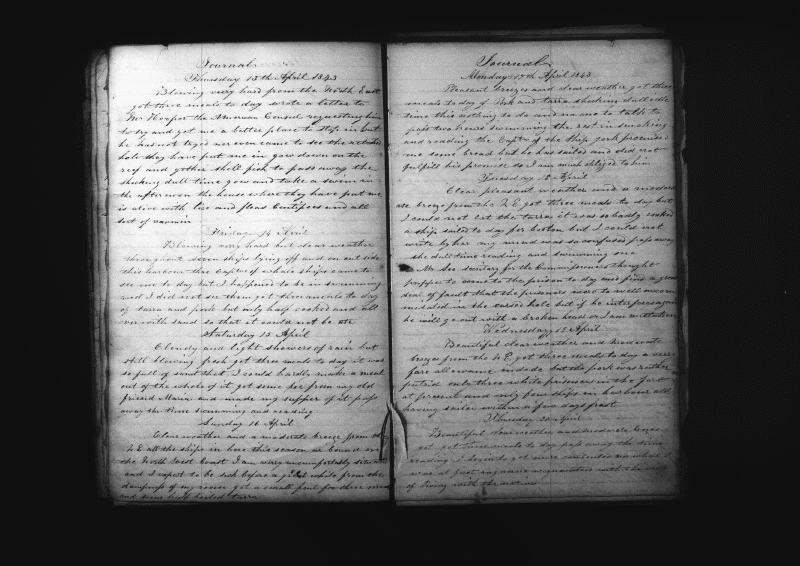 Journal
Thursday 13th April 1843
Blowing very hard from the North East
got three meals to day wrote a letter to
Mr Hooper the American Consul requesting him
to try and get me a better place to stop in but
he has not tryed nor even came to see the
hole they have put me in gow down on the
reef and gather shell fish to pass away the
dull time gow and take a swim in
the afternoon the house where they have put me
is alive with lice and fleas Centipees and all
sort of varmin
Friday 14 April
Blowing very hard but clear weather
throughout seven ships lying off and on out side
this harbour three Capts of whale ships came to
see me to day but I happened to be in swimming
and I did not see them got three meals to day
of tarra and pork but only half cooked and all
over with sand so that it could not be ate
Saturday 15 April
Cloudy and light showers of rain but
still blowing fresh got three meals to day it was
so full of sand that I could hardly make a meal
out of the whole of it got some from my old
friend Maria and made my supper of it pass
away the time swimming and reading
Sunday 16 April
Clear weather and a moderate breeze from the
N E all the ships in here this season are bound on
the North West Coast I am very uncomfortably situated
and I expect to be sick before a great while from the
dampness of my room got a small for three meals
and some half boiled tarra
Journal
Monday 17th April 1843
Pleasant breezes and clear weather got three
meals to day of Pork and tarra shocking dull idle
time this nothing to do and no one to talk to
pass two hours swimming the rest in smoking
and reading the Captn of the Ship York promised
me some bread but he has sailed and did not
fulfill his promise so I am much obliged to him
Tuesday 18 April
Clear pleasant weather and a moder
ate breeze from the N E got three meals to day but
I could not eat the tarra it was so badly cooked
a ship sailed to day for boston but I could not
write by her my mind was so confused pass away
the dull time reading and swimming
Mr secretary for the Commissioners thought
propper to come to the prison to day and find a great
deal of fault that the prisoners were to well accom
madated in the cursed hole but if he interferes again
he will go out with a broken head or I am mistaken
Wednesday 19 April
Beautiful clear weather and moderate
breeze from the N E got three meals to day a very
fare allowance indeede but the pork was rather
putrid only three white prisoners in the fort
at present and only four ships in harbour all
having sailed within a few days past
Thursday 20 April
Beautiful clear weather and moderate breeze
got three meals to day pass away the time
reading I begin to get more
with the
of living with the natives